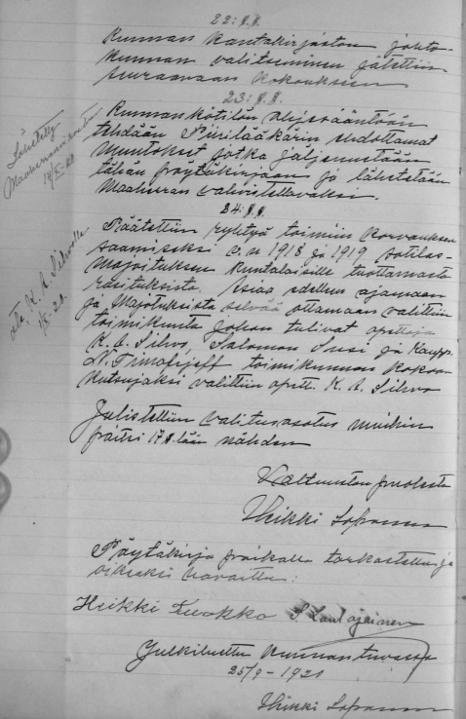 22: §.§.
Kunnan Kantakirjaston johto-
kunnan valitseminen jätettiin
seuraavaan Kokoukseen
23: §.§.
Kunnankotilon ohjesääntöön
tehdään Piirilääkärin ehdottamat
muutokset jotka jäljennetään
tähän pöytäkirjaan ja lähetetään
Maaherran vahvistettavaksi.
Lähetetty
Maaherranvirastoon
24: §.§.
Päätettiin ryhtyä toimiin Korvauksen
saamiseksi v.n 1918 ja 1919 sotilas-
majoituksen Kuntalaisille tuottamasta
rasituksista. Asiaa edelleen ajamaan
ja Majotuksista selvää ottamaan valittiin
toimikunta johon tulivat opettaja
K. A. Silvo, Salomon Susi ja Kaupp.
N. Timofejeff toimikunnan Kokoon
Kutsujaksi valittiin opett. K. A. Silvo
K. A. Silvolle
Julistettiin valitusosotus muihin
paitsi 17 §.lään nähden
Valtuuston puolesta
Heikki
Pöytäkirja paikalla tarkastettu ja
oikeaksi havaittu:
Heikki Kuokko
Julkiluettu Kunnantuvassa
25/9 - 1921
Heikki